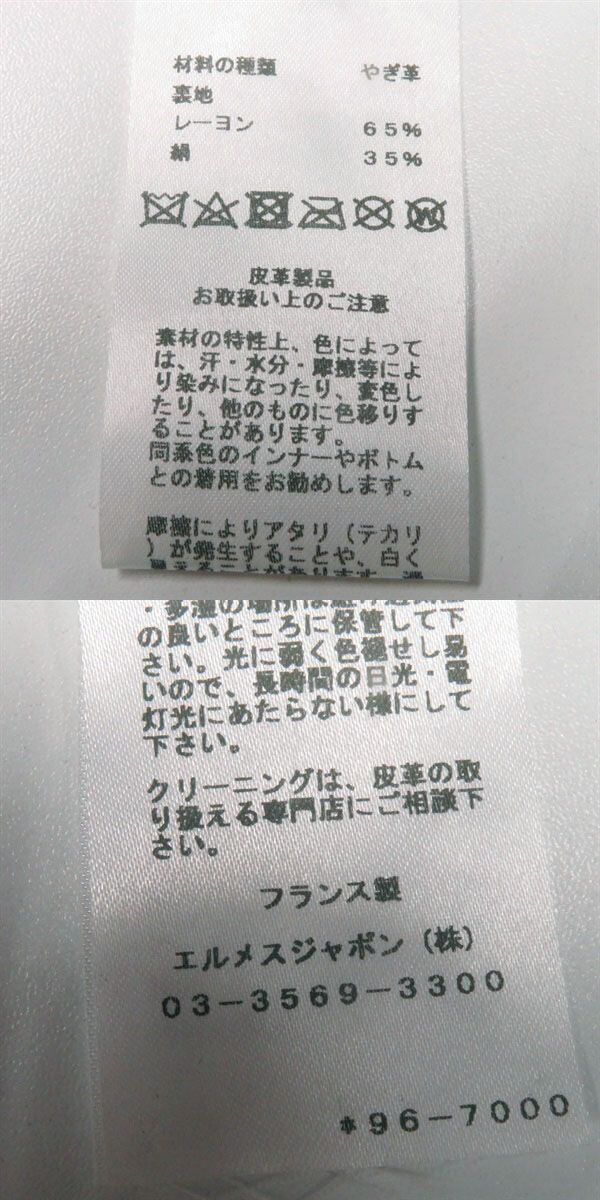 材料の種類 やぎ革
裏地
レーヨン 65%
絹 35%
皮革製品
お取扱い上のご注意
素材の特性上、色によって
は、汗・水分・摩擦等によ
り染みになったり、変色し
たり、他のものに色移りす
ることがあります。
同系色のインナーやボトム
との着用をお勧めします。
摩擦によりアタリ(テカリ
)が発生することや、白く
見えることがあります。
・多湿の場所は
の良いところに保管して下
さい。光に弱く色褪せし易
いので、長時間の日光・電
灯光にあたらない様にして
下さい。
クリーニングは、皮革の取
り扱える専門店にご相談下
さい。
フランス製
エルメスジャポン(株)
03-3569-3300
*96-7000